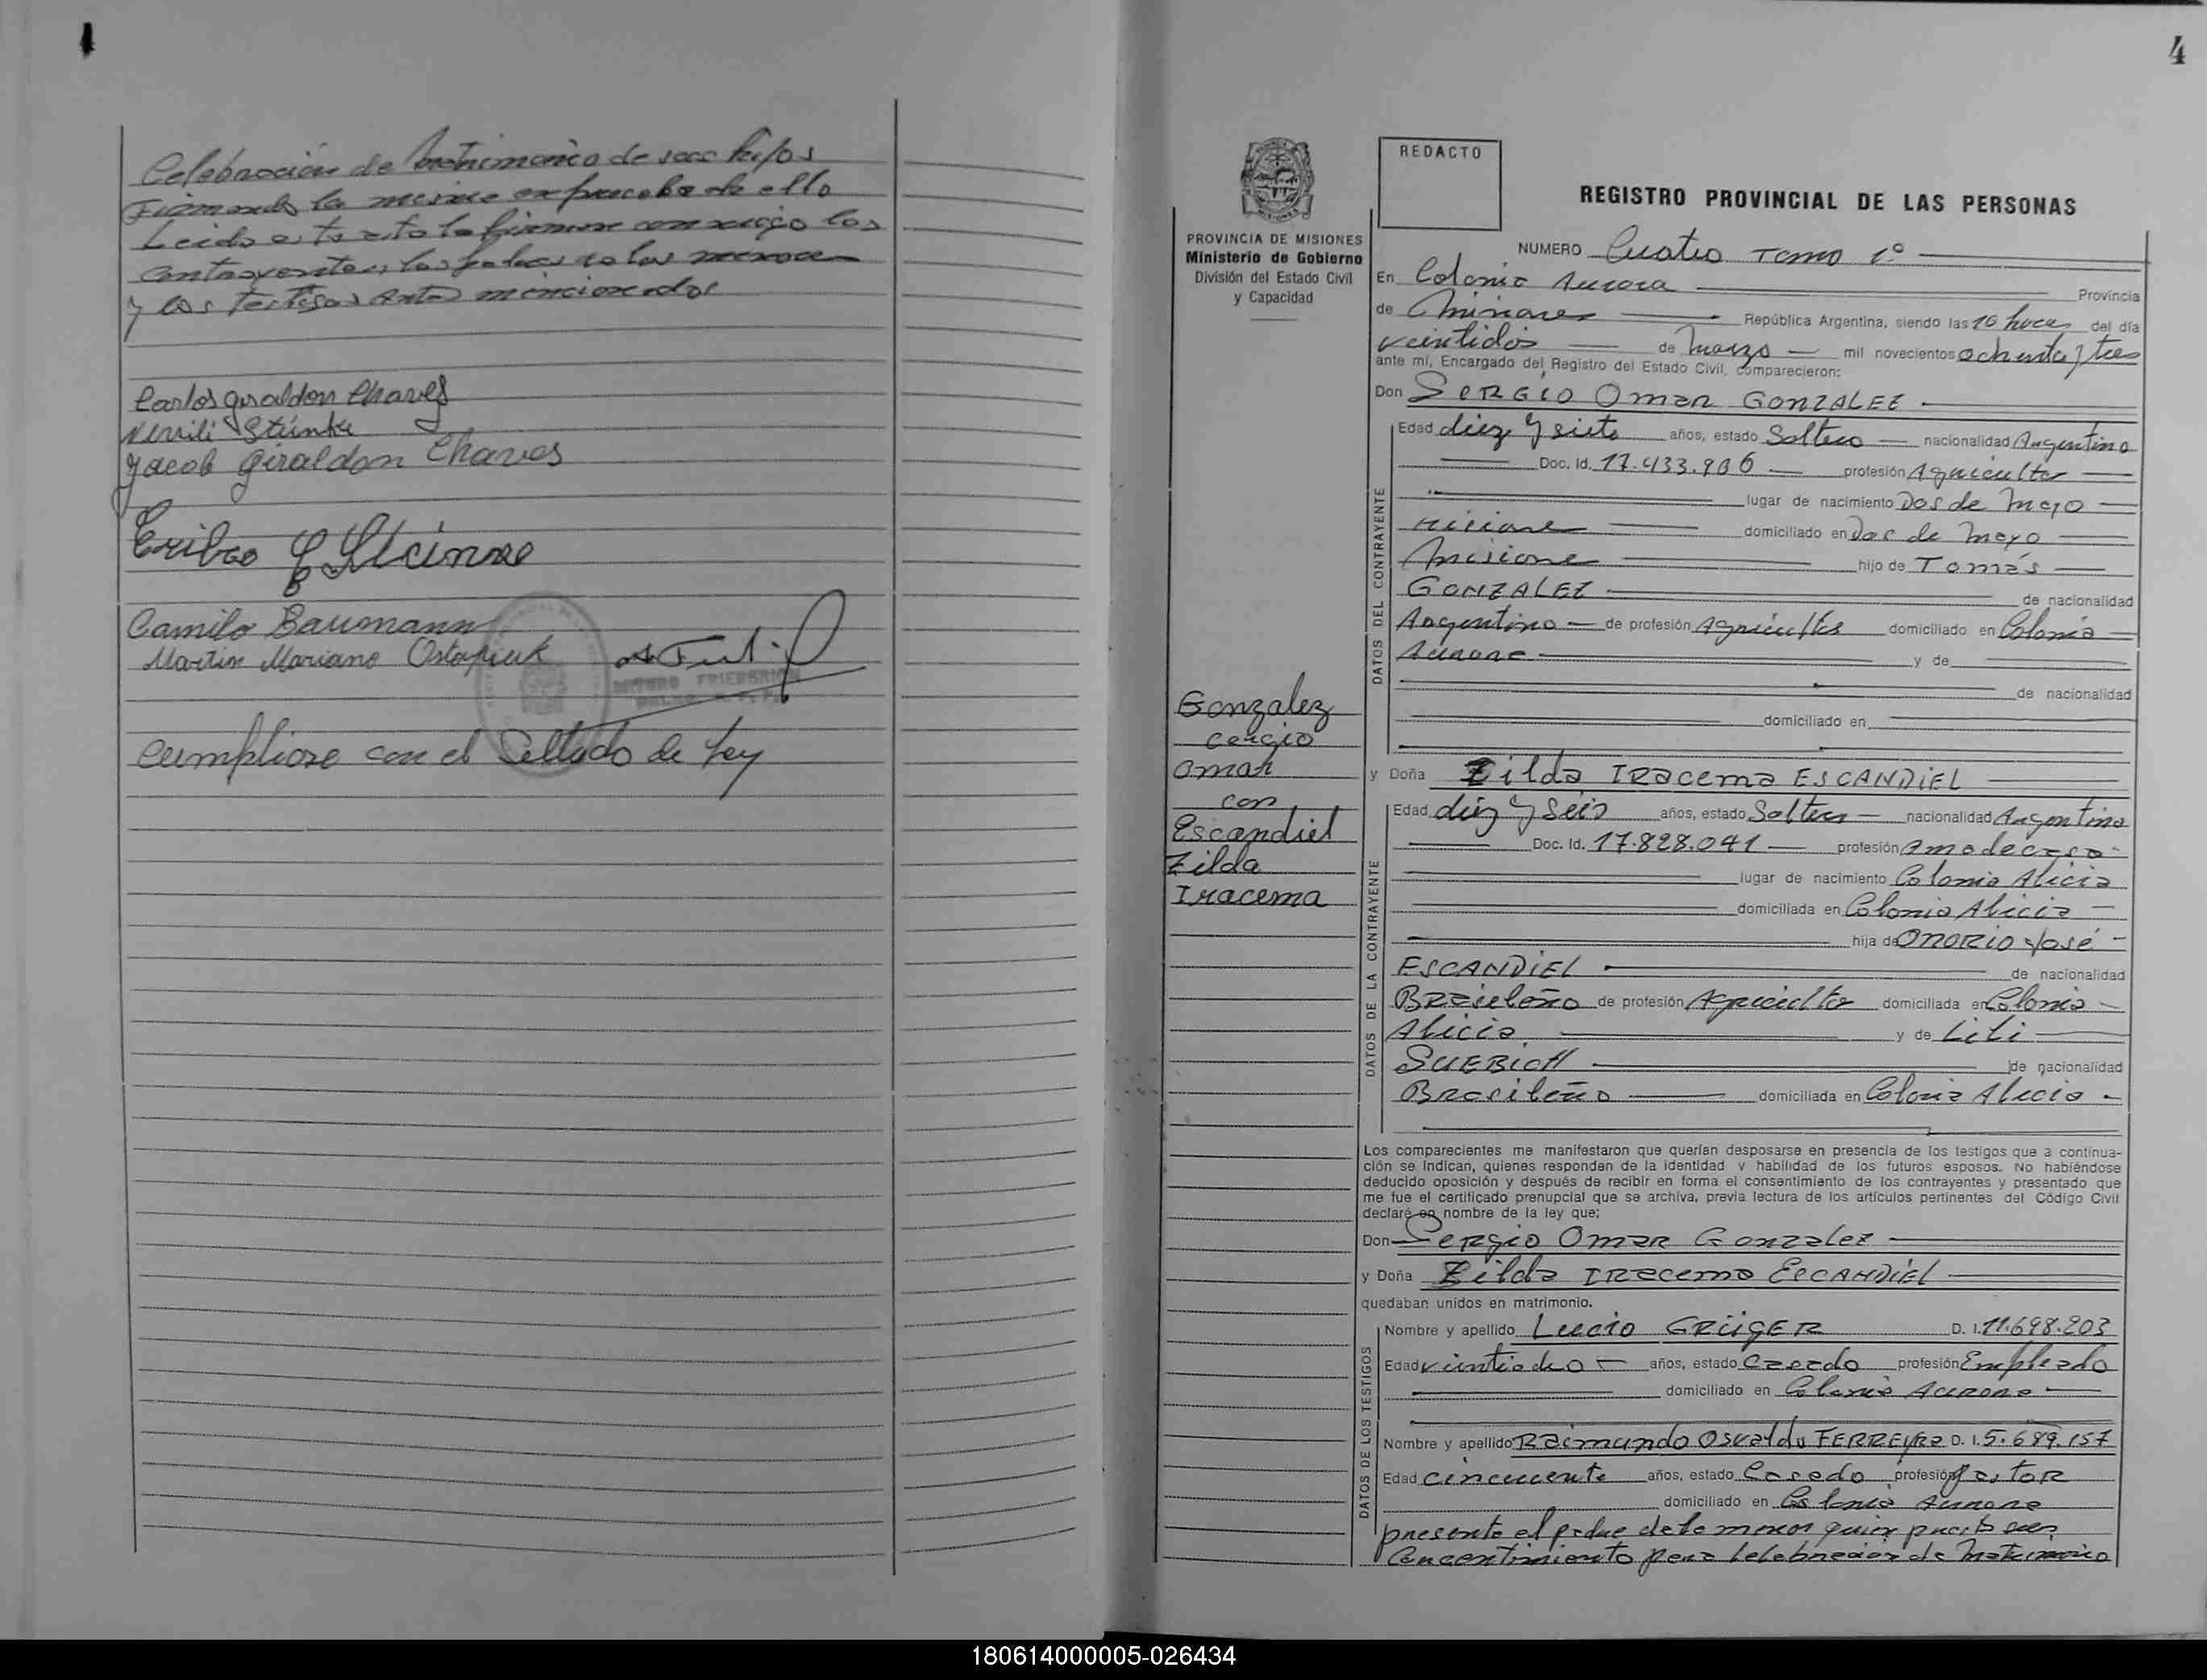 4
Celebración de Matrimonio de sus hijos
Firmando la misma en prueba de ello
Leida esta acta la firman conmigo los
Contrayentes, los padres de los menores
y los testigos antes mencionados
Carlos Giraldon Chaves
Nerili Stünke
Jacob Giraldon Chaves
Camilo Baumann
Martin Mariano Ostapiuk
Cumpliose con el Sellado de Ley
4
REDACTO
REGISTRO PROVINCIAL DE LAS PERSONAS
PROVINCIA DE MISIONES
Ministerio de Gobierno
División del Estado Civil
y Capacidad
NUMERO Cuatro Tomo 1º
En Colonia Aurora Provincia
de Misiones República Argentina, siendo las 10 horas del día
veintidos de Marzo mil novecientos ochenta y tres
ante mí, Encargado del Registro del Estado Civil, comparecieron:
Don SERGIO Omar GONZALEZ
DATOS DEL CONTRAYENTE
Edad diez y siete años, estado Soltero nacionalidad Argentino
Doc. Id. 17.433.906 profesión Agricultor
lugar de nacimiento Dos de Mayo
Misiones domiciliado en Dos de Mayo
Misiones hijo de Tomás
GONZALEZ de nacionalidad
Argentino de profesión Agricultor domiciliado en Colonia
Aurora y de
de nacionalidad
domiciliado en
Gonzalez
Cergio
Omar
con
Escandiel
Zilda
Iracema
y Doña Zilda IRacema ESCANDIEL
DATOS DE LA CONTRAYENTE
Edad diez y seis años, estado Soltera nacionalidad Argentina
Doc. Id. 17.828.041 profesión Ama de casa
lugar de nacimiento Colonia Alicia
domiciliada en Colonia Alicia
hija de ONORIO José
ESCANDIEL de nacionalidad
Brasileño de profesión Agricultor domiciliada en Colonia
Alicia y de Lili
SUEBICH de nacionalidad
Brasileña domiciliada en Colonia Alicia
Los comparecientes me manifestaron que querían desposarse en presencia de los testigos que a continua-
ción se indican, quienes responden de la identidad y habilidad de los futuros esposos. No habiéndose
deducido oposición y después de recibir en forma el consentimiento de los contrayentes y presentado que
me fue el certificado prenupcial que se archiva, previa lectura de los artículos pertinentes del Código Civil
declaré en nombre de la ley que:
Don Sergio Omar Gonzalez
y Doña Zilda IRacema ESCANDIEL
quedaban unidos en matrimonio.
DATOS DE LOS TESTIGOS
Nombre y apellido Lucio GRÜGER D. I. 11.698.203
Edad veintiocho años, estado Casado profesión Empleado
domiciliado en Colonia Aurora
Nombre y apellido Raimundo Osvaldo FERREyRa D. I. 5.689.157
Edad cincuenta años, estado Casado profesión Pastor
domiciliado en Colonia Aurora
presente el padre de la menor quien presto su
Concentimiento para Celebración de Matrimonio
180614000005-026434